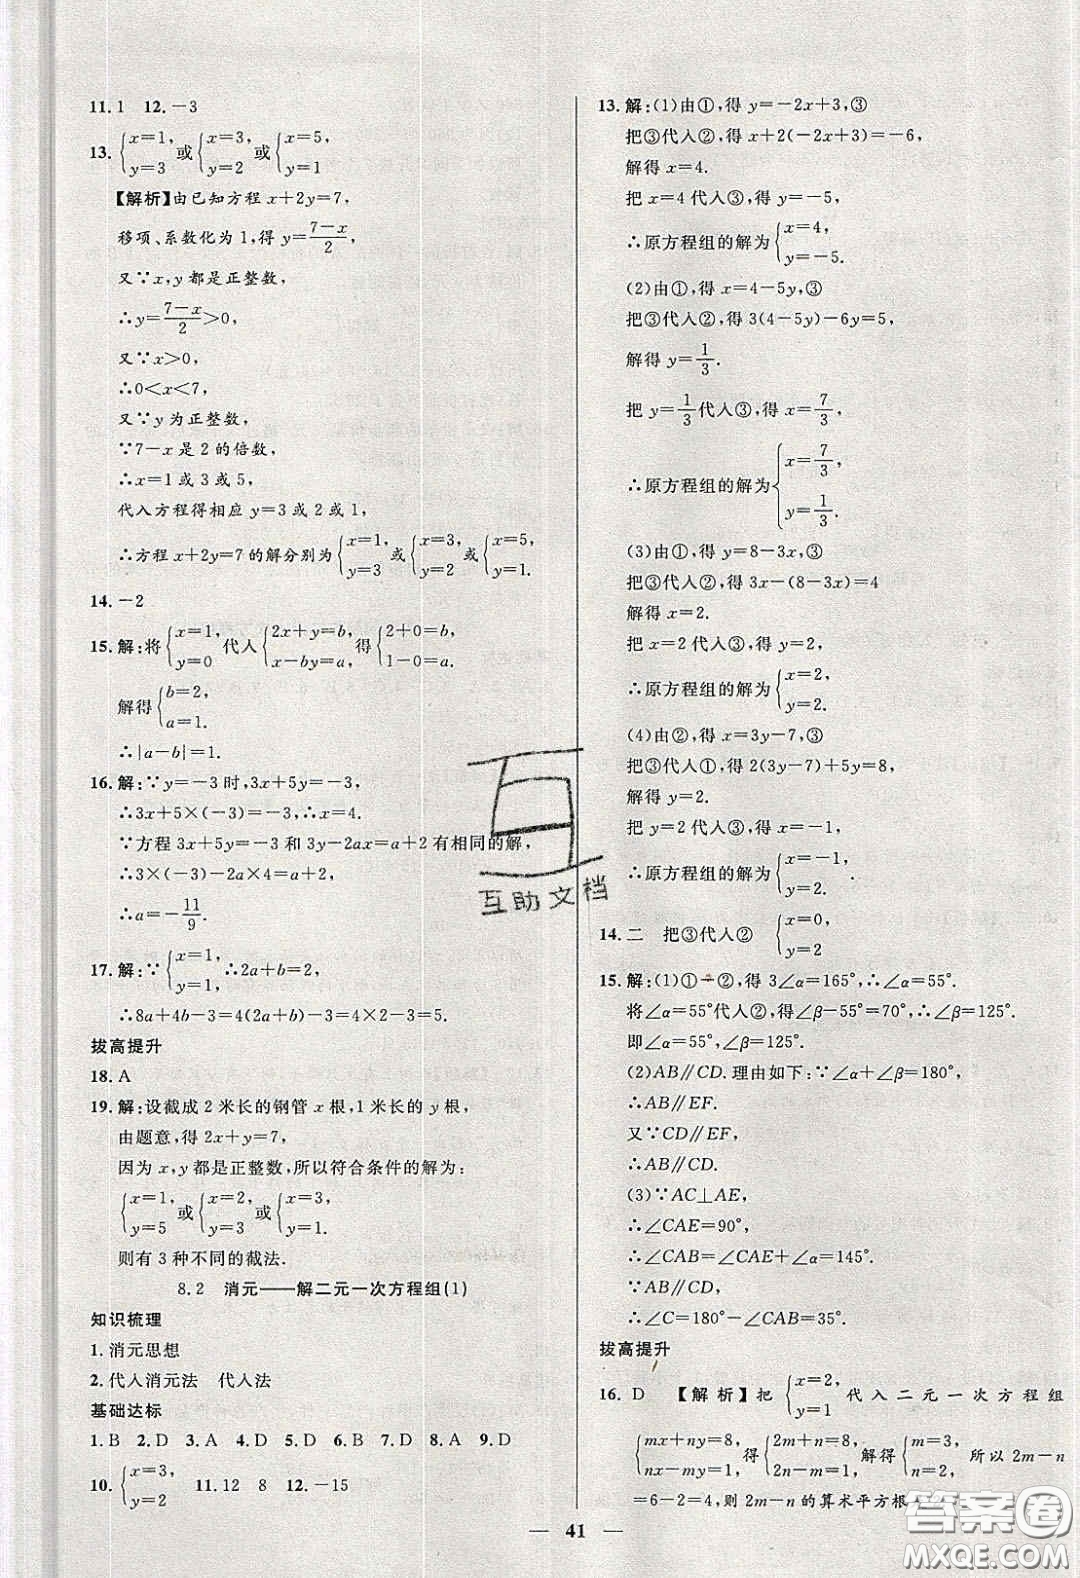 11. 1　12. －3
13. {x=1, y=3 或 {x=3, y=2 或 {x=5, y=1
【解析】由已知方程 x+2y=7,
移项、系数化为 1,得 y=(7－x)/2,
又∵x,y 都是正整数,
∴y=(7－x)/2>0,
又∵x>0,
∴0<x<7,
又∵y 为正整数,
∵7－x 是 2 的倍数,
∴x=1 或 3 或 5,
代入方程得相应 y=3 或 2 或 1,
∴方程 x+2y=7 的解分别为 {x=1, y=3 或 {x=3, y=2 或 {x=5, y=1
14. －2
15. 解:将 {x=1, y=0 代入 {2x+y=b, x－by=a, 得 {2+0=b, 1－0=a.
解得 {b=2, a=1.
∴|a－b|=1.
16. 解:∵y=－3 时,3x+5y=－3,
∴3x+5×(－3)=－3,∴x=4.
∵方程 3x+5y=－3 和 3y－2ax=a+2 有相同的解,
∴3×(－3)－2a×4=a+2,
∴a=－11/9.
17. 解:∵{x=1, y=1, ∴2a+b=2,
∴8a+4b－3=4(2a+b)－3=4×2－3=5.
拔高提升
18. A
19. 解:设截成 2 米长的钢管 x 根,1 米长的 y 根,
由题意,得 2x+y=7,
因为 x,y 都是正整数,所以符合条件的解为:
{x=1, y=5 或 {x=2, y=3 或 {x=3, y=1.
则有 3 种不同的截法.
8.2　消元——解二元一次方程组(1)
知识梳理
1. 消元思想
2. 代入消元法　代入法
基础达标
1. B　2. D　3. A　4. D　5. D　6. B　7. D　8. A　9. D
10. {x=3, y=2　11. 12　8　12. －15
13. 解:(1)由①,得 y=－2x+3,③
把③代入②,得 x+2(－2x+3)=－6,
解得 x=4.
把 x=4 代入③,得 y=－5,
∴原方程组的解为 {x=4, y=－5.
(2)由①,得 x=4－5y,③
把③代入②,得 3(4－5y)－6y=5,
解得 y=1/3.
把 y=1/3 代入③,得 x=7/3,
∴原方程组的解为 {x=7/3, y=1/3.
(3)由①,得 y=8－3x,③
把③代入②,得 3x－(8－3x)=4
解得 x=2.
把 x=2 代入③,得 y=2,
∴原方程组的解为 {x=2, y=2.
(4)由②,得 x=3y－7,③
把③代入①,得 2(3y－7)+5y=8,
解得 y=2.
把 y=2 代入③,得 x=－1,
∴原方程组的解为 {x=－1, y=2.
14. 二　把③代入②　{x=0, y=2
15. 解:(1)①－②,得 3∠α=165°,∴∠α=55°.
将∠α=55°代入②,得∠β－55°=70°,∴∠β=125°.
即∠α=55°,∠β=125°.
(2)AB∥CD.理由如下:∵∠α+∠β=180°,
∴AB∥EF.
又∵CD∥EF,
∴AB∥CD.
(3)∵AC⊥AE,
∴∠CAE=90°,
∴∠CAB=∠CAE+∠α=145°.
∵∠AB∥CD,
∴∠C=180°－∠CAB=35°.
拔高提升
16. D　【解析】把 {x=2, y=1 代入二元一次方程组
{mx+ny=8, nx－my=1, 得 {2m+n=8, 2n－m=1, 解得 {m=3, n=2, 所以 2m－n
=6－2=4,则 2m－n 的算术平方根
— 41 —
互助文档
答案圈
MXQE.COM